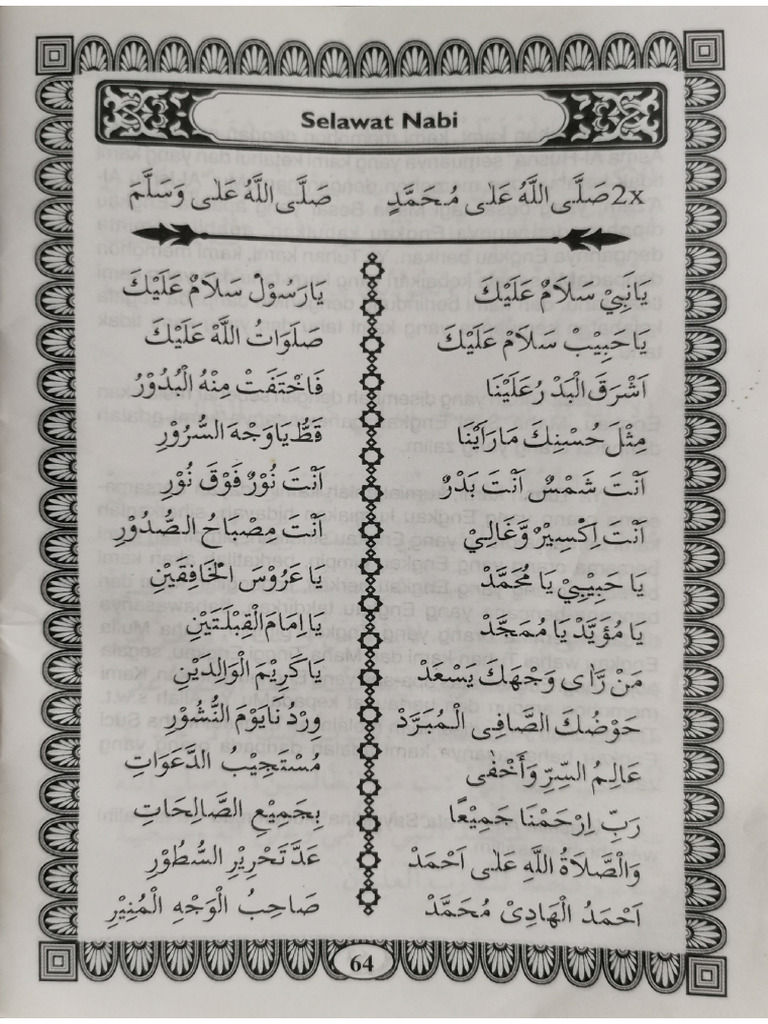 Selawat Nabi
2x صَلَّى اللَّهُ عَلَى مُحَمَّدٍ صَلَّى اللَّهُ عَلَى وَسَلَّمَ
يَانَبِيْ سَلَامٌ عَلَيْكَ يَارَسُوْلْ سَلَامٌ عَلَيْكَ
يَاحَبِيْبْ سَلَامٌ عَلَيْكَ صَلَوَاتُ اللَّهْ عَلَيْكَ
اَشْرَقَ الْبَدْرُ عَلَيْنَا فَاخْتَفَتْ مِنْهُ الْبُدُوْرُ
مِثْلَ حُسْنِكَ مَارَاَيْنَا قَطُّ يَاوَجْهَ السُّرُوْرِ
اَنْتَ شَمْسٌ اَنْتَ بَدْرٌ اَنْتَ نُوْرٌ فَوْقَ نُوْرِ
اَنْتَ اِكْسِيْرٌ وَّغَالِيْ اَنْتَ مِصْبَاحُ الصُّدُوْرِ
يَا حَبِيْبِيْ يَا مُحَمَّدْ يَا عَرُوْسَ الْخَافِقَيْنِ
يَا مُؤَيَّدْ يَا مُمَجَّدْ يَا اِمَامَ الْقِبْلَتَيْنِ
مَنْ رَّاٰى وَجْهَكَ يَسْعَدْ يَا كَرِيْمَ الْوَالِدَيْنِ
حَوْضُكَ الصَّافِى الْمُبَرَّدْ وِرْدُنَا يَوْمَ النُّشُوْرِ
عَالِمُ السِّرِّ وَأَخْفٰى مُسْتَجِيْبُ الدَّعَوَاتِ
رَبِّ اِرْحَمْنَا جَمِيْعًا بِجَمِيْعِ الصَّالِحَاتِ
وَالصَّلَاةُ اللَّهِ عَلَى اَحْمَدْ عَدَّ تَحْرِيْرِ السُّطُوْرِ
اَحْمَدُ الْهَادِيْ مُحَمَّدْ صَاحِبُ الْوَجْهِ الْمُنِيْرِ
64